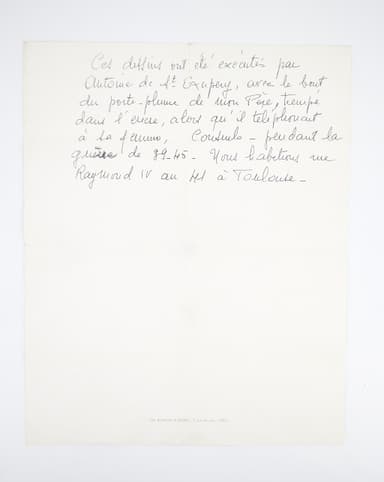 Ces dessins ont été exécutés par
Antoine de St Exupery, avec le bout
du porte-plume de mon Père, trempé
dans l'encre, alors qu'il téléphonait
à sa femme, Consuelo - pendant la
guerre de 39-45 - Nous habitions rue
Raymond IV au à Toulouse -